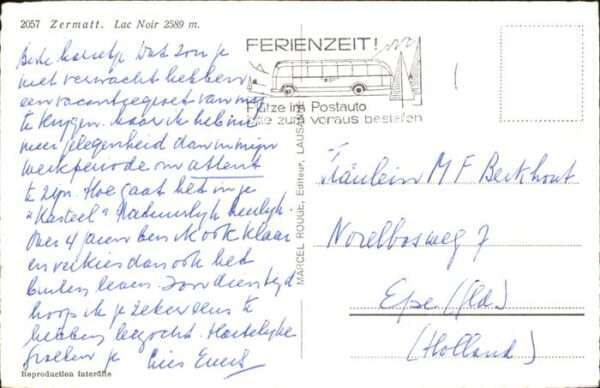 2057 Zermatt. Lac Noir 2589 m.
FERIENZEIT!
Plätze im Postauto
bitte zum voraus bestellen
Beste Marietje Dat zou je
niet verwacht hebben
een vacantiegroet van mij
te krijgen. Maar ik heb nu
meer gelegenheid dan in mijn
werkperiode om attent
te zijn. Hoe gaat het in je
"Kasteel" Natuurlijk heerlijk.
Over 4 jaar ben ik ook klaar
en verkies dan ook het
buiten leven. Voor die tijd
hoop ik je zeker eens te
hebben bezocht. Hartelijke
groeten je
Reproduction interdite
MARCEL ROUGE, Editeur, LAUSANNE
Fräulein M F Berkhout
7
Epe (Gld)
(Holland)